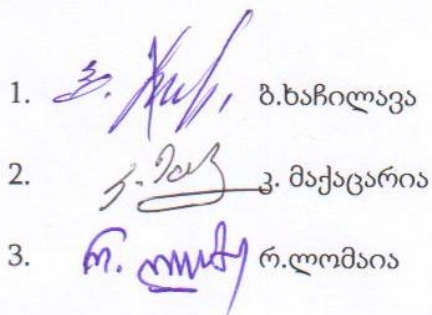 1. ბ.ხაჩილავა
2. კ. მაქაცარია
3. რ.ლომაია